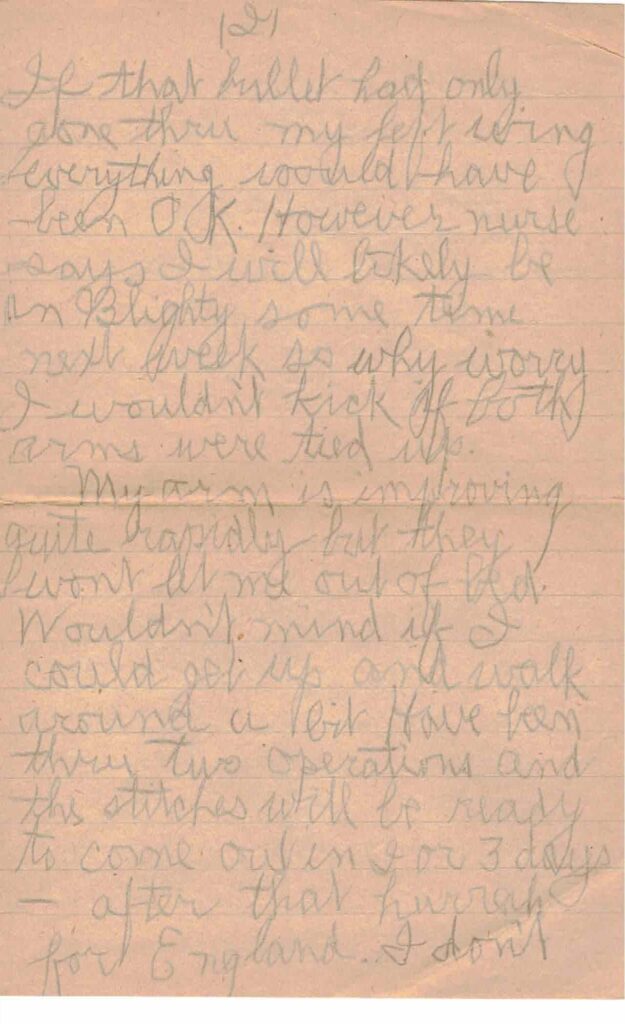 121
If that bullet had only
gone thru my left wing
everything would have
been O.K. However nurse
says I will likely be
in Blighty some time
next week so why worry
I wouldn't kick if both
arms were tied up.
My arm is improving
quite rapidly but they
wont let me out of bed.
Wouldn't mind if I
could get up and walk
around a bit Have been
thru two operations and
the stitches will be ready
to come out in 2 or 3 days
— after that hurrah
for England. I don't